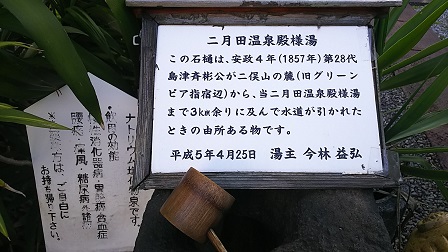 二月田温泉殿様湯
この石樋は、安政4年(1857年)第28代
島津斉彬公が二俣山の麓(旧グリーン
ピア指宿辺)から、当二月田温泉殿様湯
まで3km余りに及んで水道が引かれた
ときの由所ある物です。
平成5年4月25日 湯主 今林 益弘
ナトリウム塩化物泉です。
・飲用の効能
慢性消化器病・
糖尿病・
ご自由に
お持ち帰り下さい。